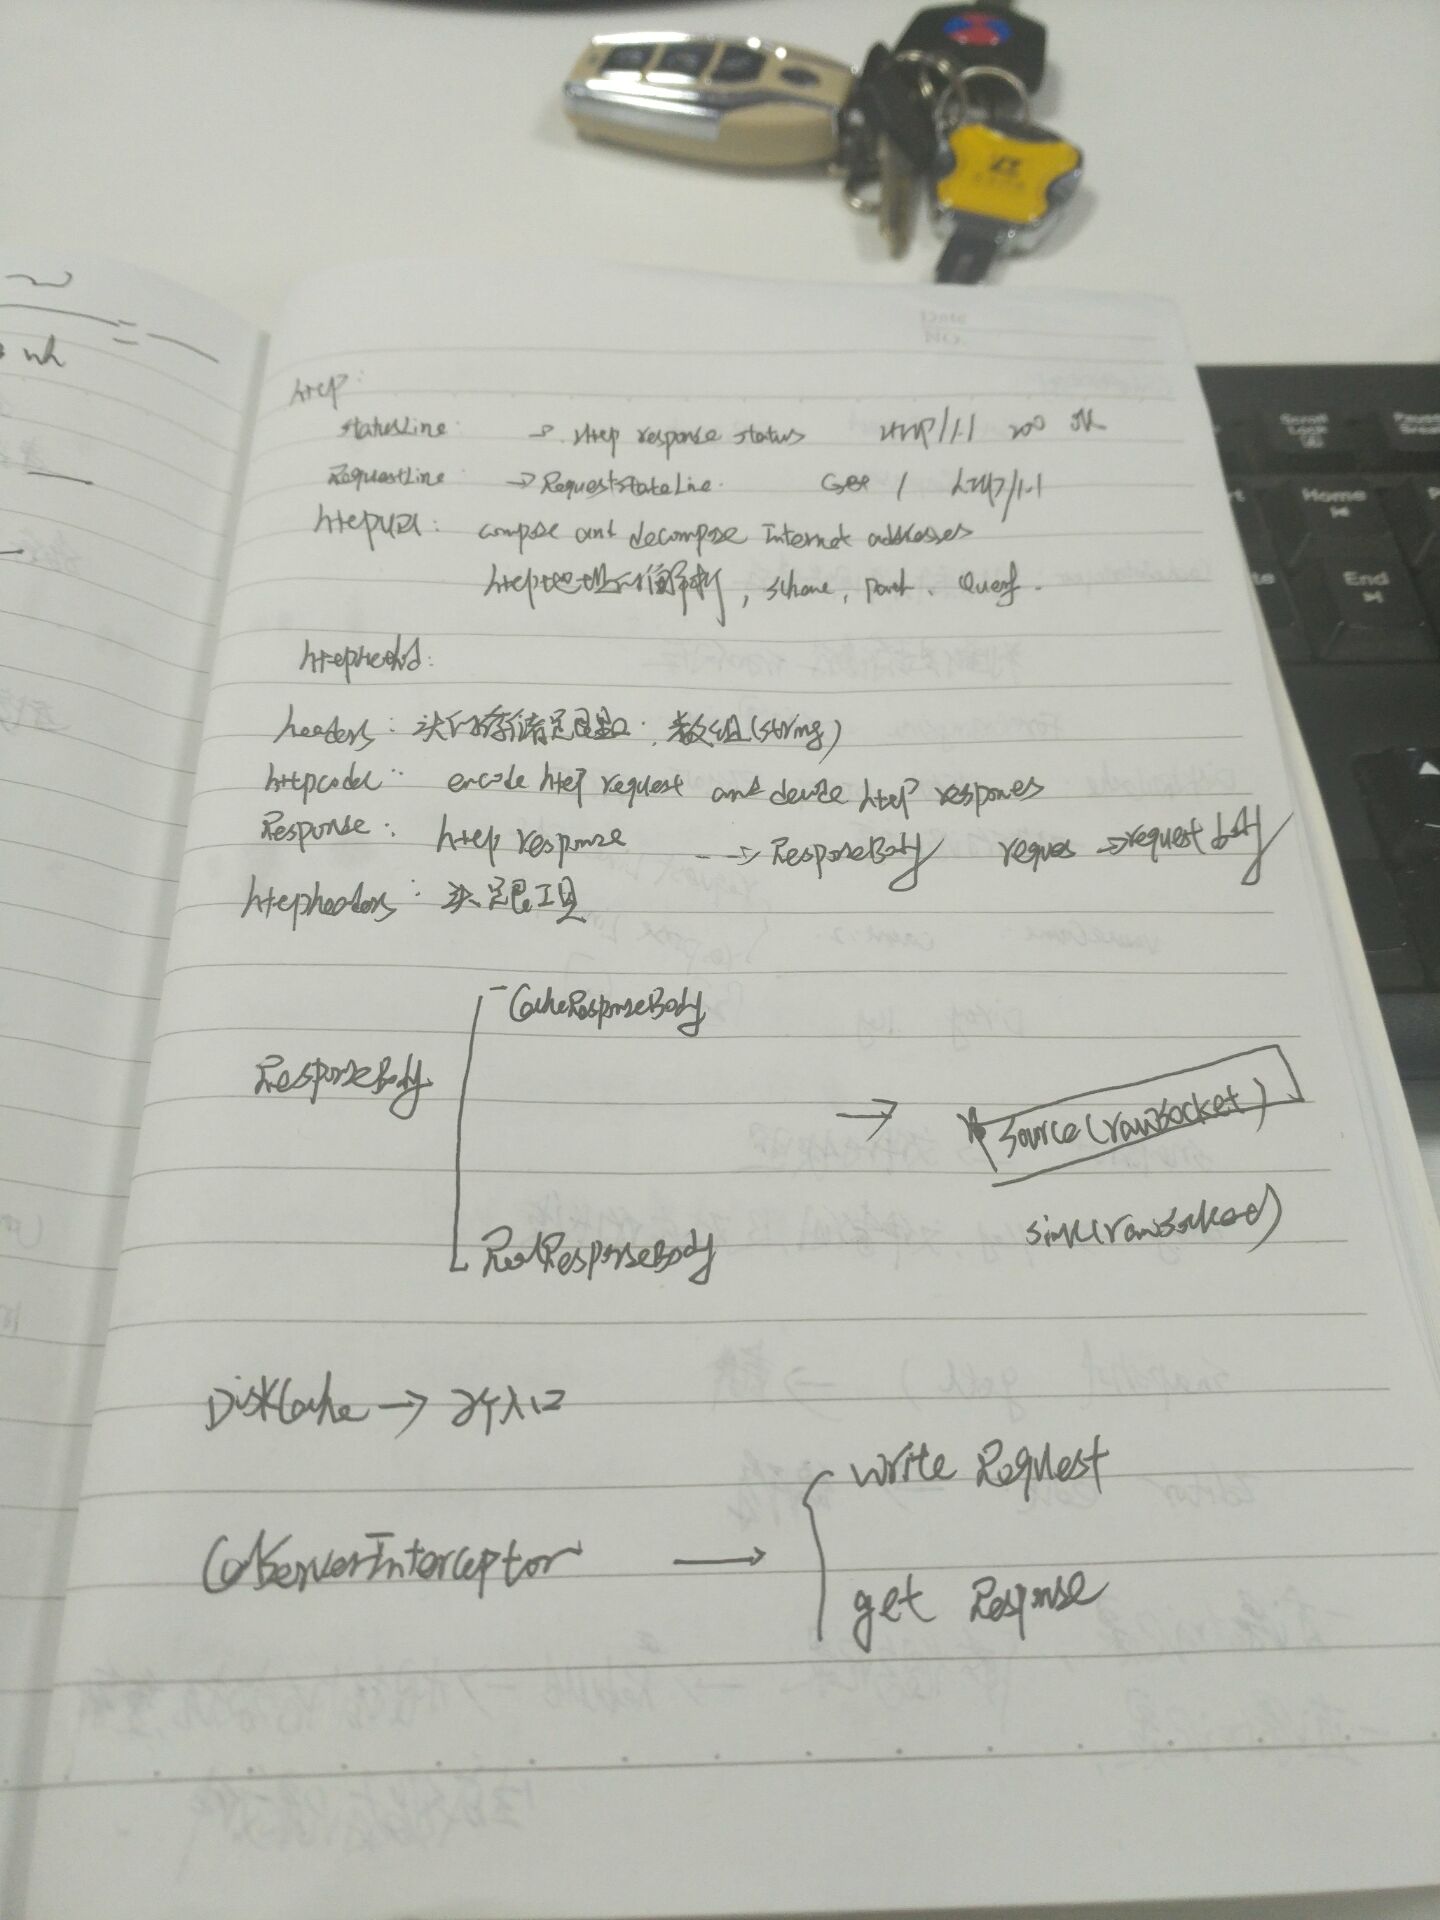 http:
StatusLine: → Http response status HTTP/1.1 200 OK
RequestLine → RequestStateLine. GET / HTTP/1.1
httpURL: compose and decompose Internet addresses
http地址的解析, scheme, port. Query.
httpMethod:
headers: 头的存储 数组(string)
httpcodec: encode http request and decode http responses
Response: http response --> ResponseBody reques → request body
httpheaders: 头 工具
CacheResponseBody
ResponseBody
→ source(rawSocket)
sink(rawSocket)
RealResponseBody
DiskCache → 入口
write Request
CallServerInterceptor →
get Response
Home
End